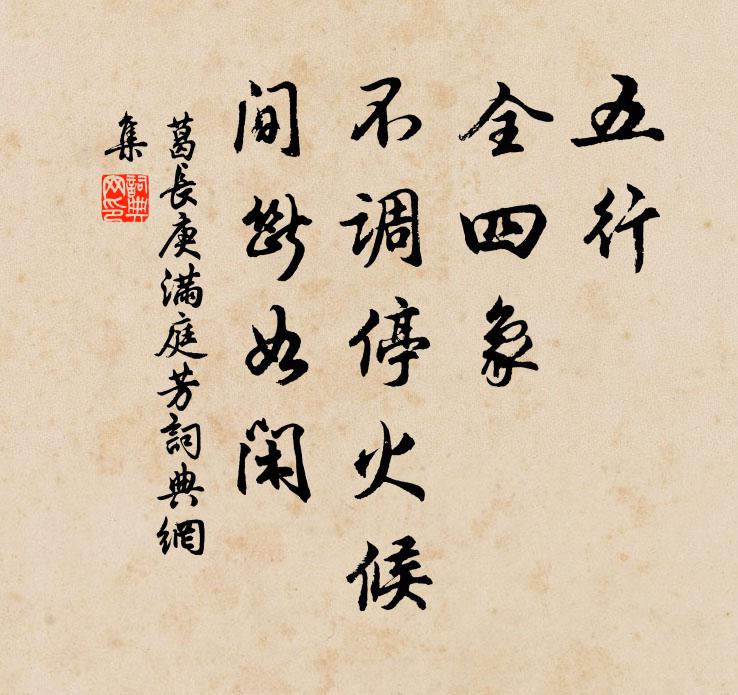 五行
全四象
不调停火候
间断如闲
葛長庚滿庭芳詞典網
集
詞典
网印